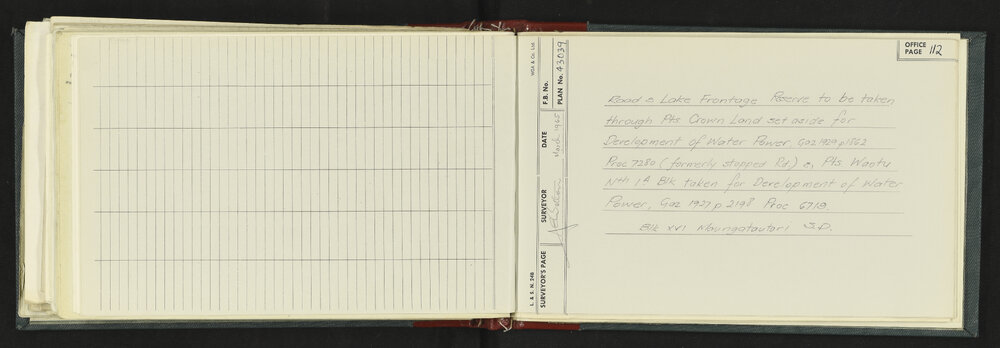 OFFICE PAGE 112
Road & Lake Frontage Reserve to be taken
through Pts Crown Land set aside for
Development of Water Power, Gaz 1929 p 1862
Proc 7280 (formerly stopped Rd.) & Pts. Waotu
Nth 1A Blk taken for Development of Water
Power, Gaz 1927 p 2198 Proc 6719.
Blk XVI Maungatautari S.D.
WSA & Co. Ltd.
F.B. No.
PLAN No. 43039
DATE March 1965
SURVEYOR
SURVEYOR'S PAGE
L. & S. N. 248